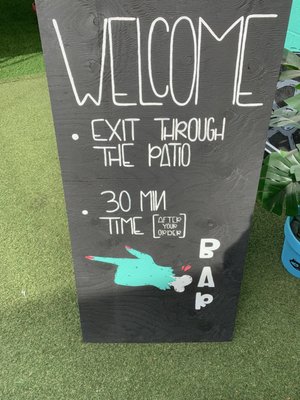 WELCOME
• EXIT THROUGH
THE PATIO
• 30 MIN
TIME [AFTER
YOUR
ORDER]
BAR